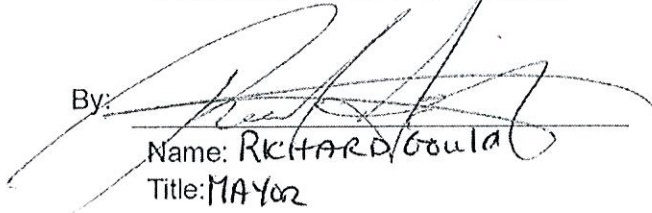 By:
Name: RICHARD Gould
Title: MAYOR